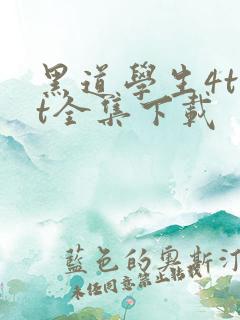 黑道學生4t
t全集下載
藍色的奧斯汀
未经同意禁止转载